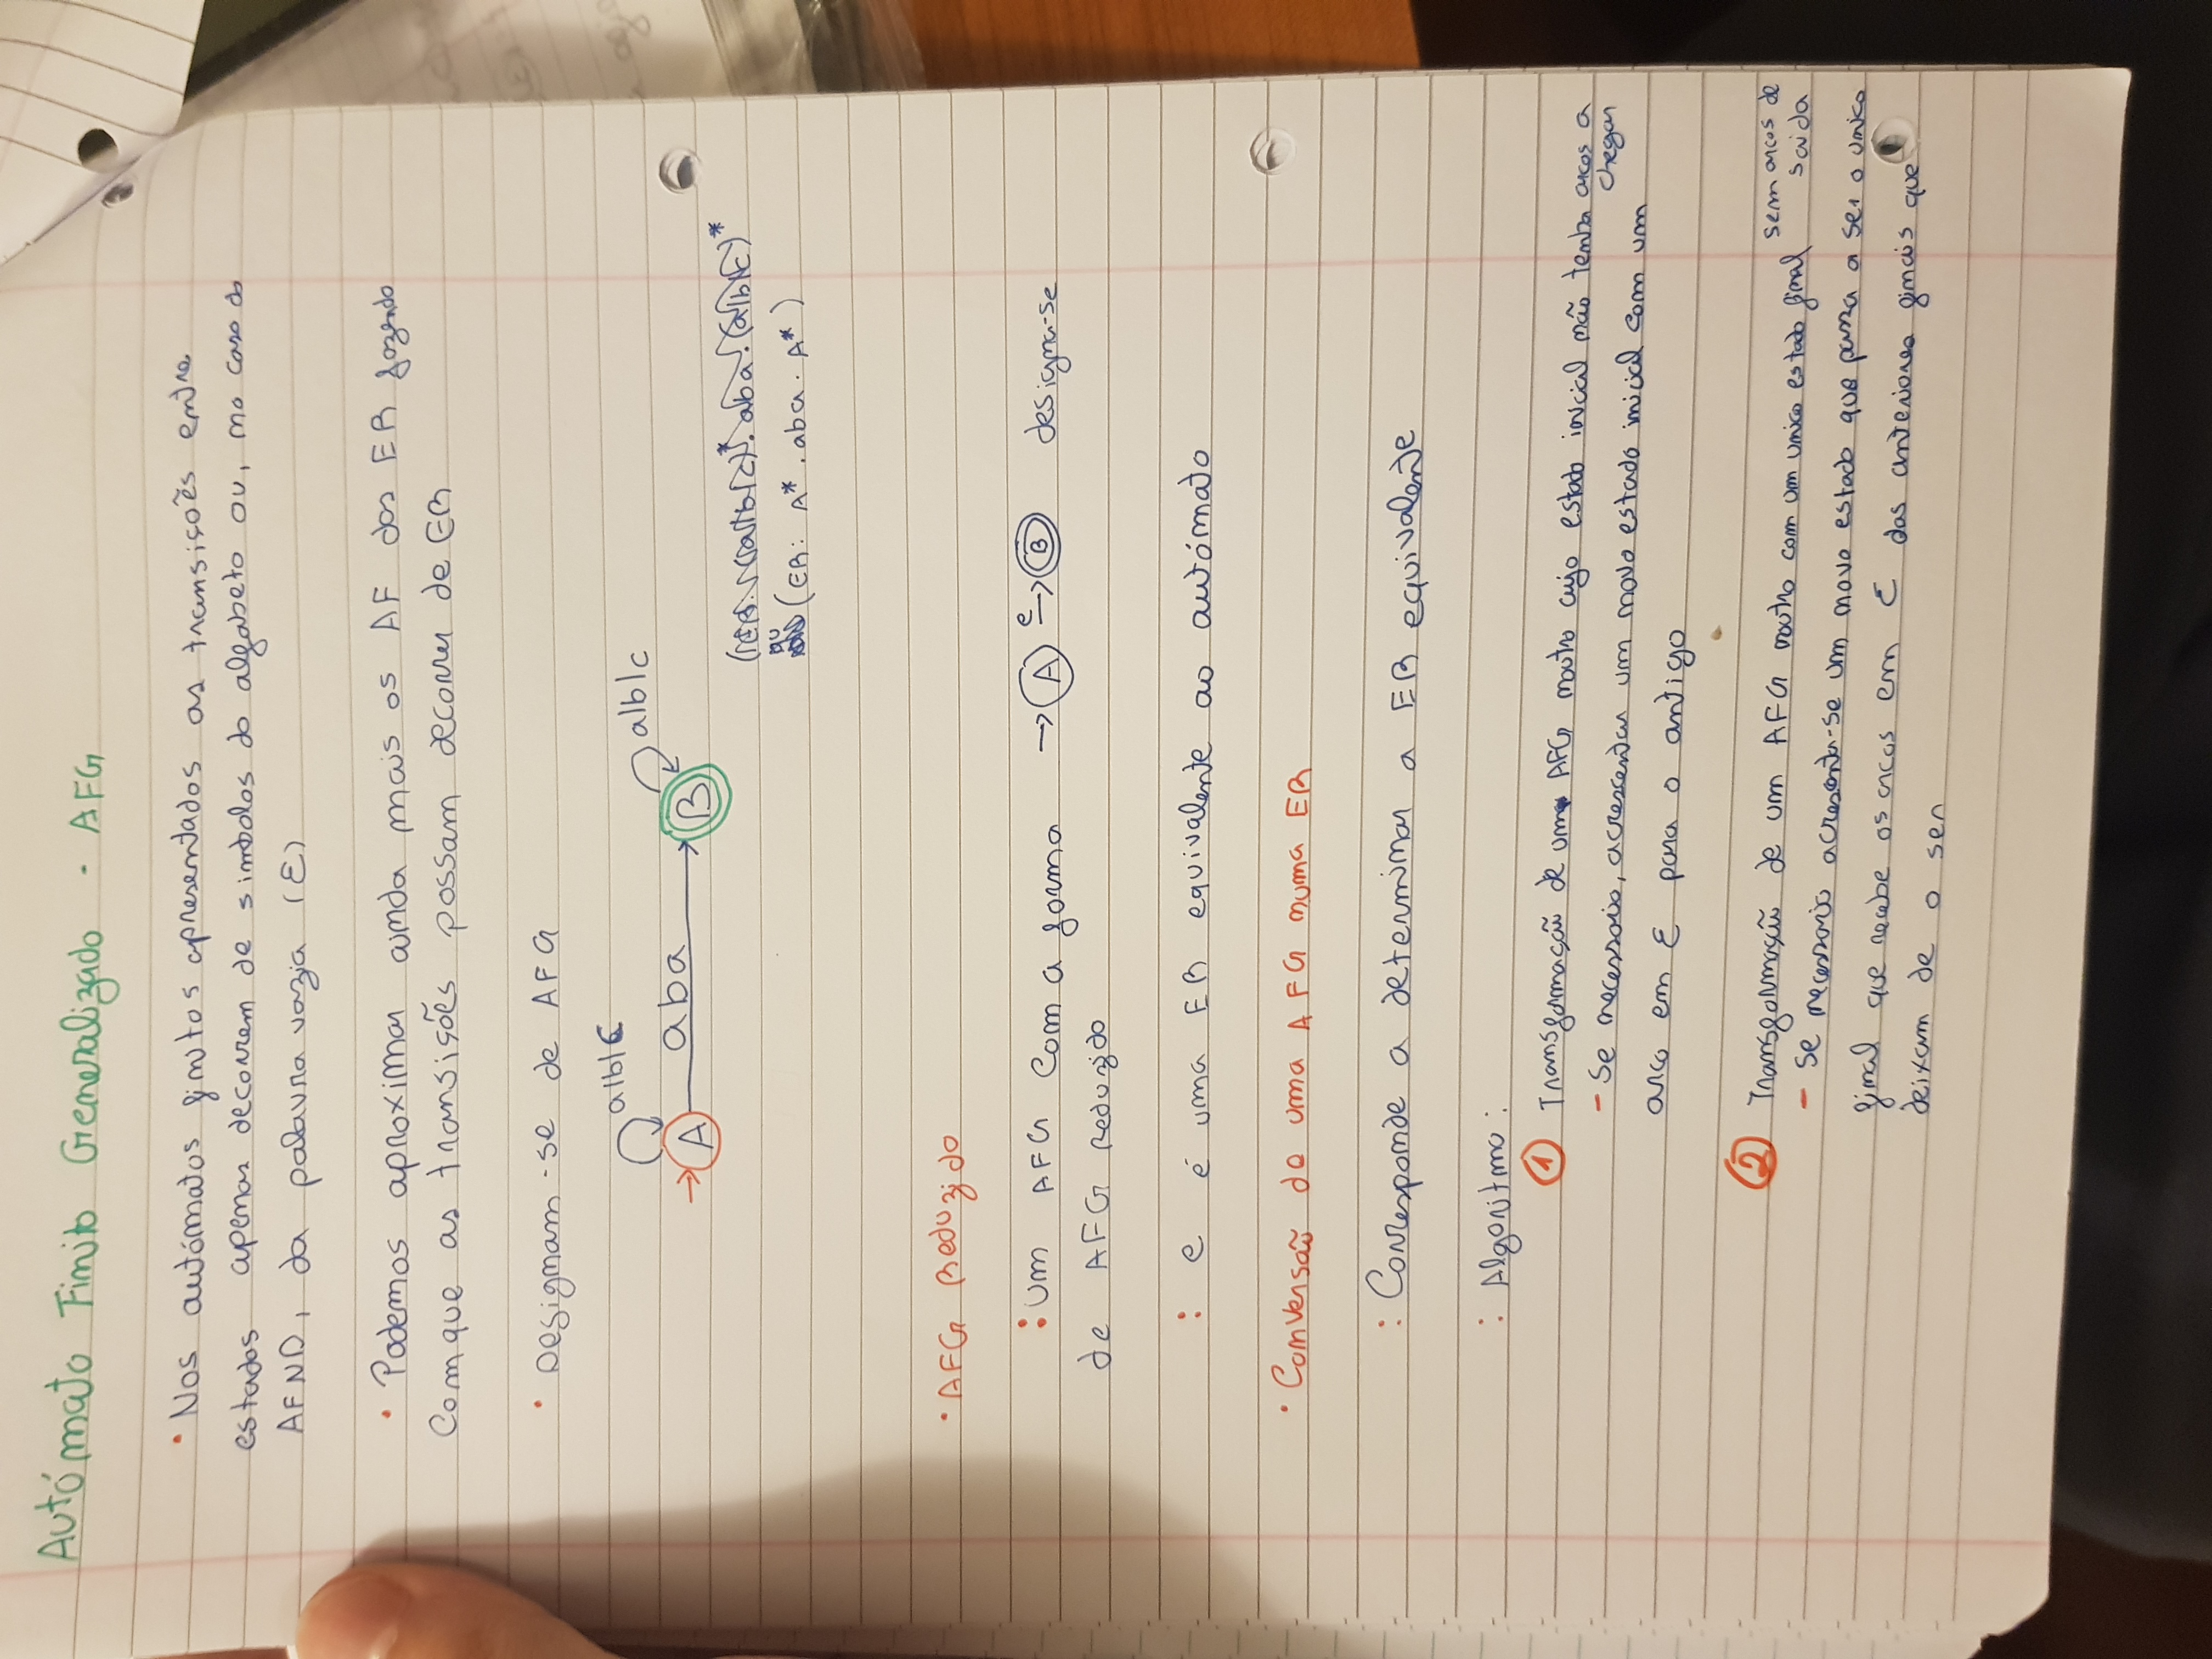 Autómato Finito Generalizado - AFG
• Nos autómatos finitos apresentados as transisões entre
estados apenas decorrem de simbolos do alfabeto ou, no caso do
AFND, da palavra vazia (ε)
• Podemos aproximar ainda mais os AF das ER fazendo
Com que as transisões possam decorrer de ER
• Designam-se de AFG
a|b|c
a|b|c
→ A aba B
(ER: (a|b|c)*. aba. (a|b|c)*
ou (ER: A* . aba . A*)
• AFG Reduzido
: Um AFG Com a forma → A e → B designa-se
de AFG Reduzido
: e é uma ER equivalente ao autómato
• Conversão de uma AFG numa ER
: Corresponde a determinar a ER equivalente
: Algoritmo:
① Transformação de um AFG noutro cujo estado inicial não tenha arcos a
chegar
- Se necessario, acrescentar um novo estado inicial com um
arco em ε para o antigo
② Transformação de um AFG noutro com um unico estado final sem arcos de
saida
- Se necessario acrescenta-se um novo estado que passa a ser o unico
final que recebe os arcos em ε dos anteriores finais que
deixam de o ser